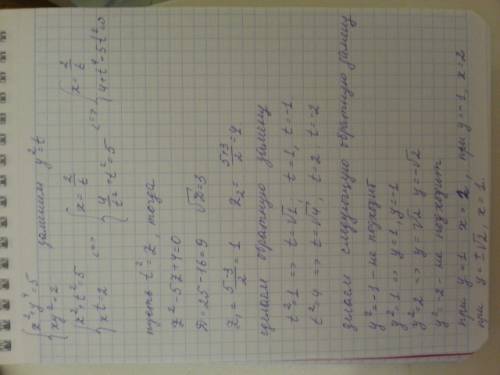 { x²+y⁴=5
{ xy²=2 заменим y²=t
{ x²+t²=5
{ xt=2 <=> { x=2/t
{ 4/t²+t²=5 <=> { x=2/t
{ 4+t⁴-5t²=0
пусть t²=z, тогда
z²-5z+4=0
D=25-16=9 √D=3
z₁=5-3/2=1 z₂=5+3/2=4
сделаем обратную замену
t²=1 => t=√1, t=1, t=-1
t²=4 => t=√4, t=2 t=-2
делаем следующую обратную замену
y²=-1 - не подходит
y²=1 => y=1, y=-1
y²=2 => y=√2 y=-√2
y²=-2 - не подходит
при y=1 x=2, при y=-1, x=2
при y=±√2, x=1.